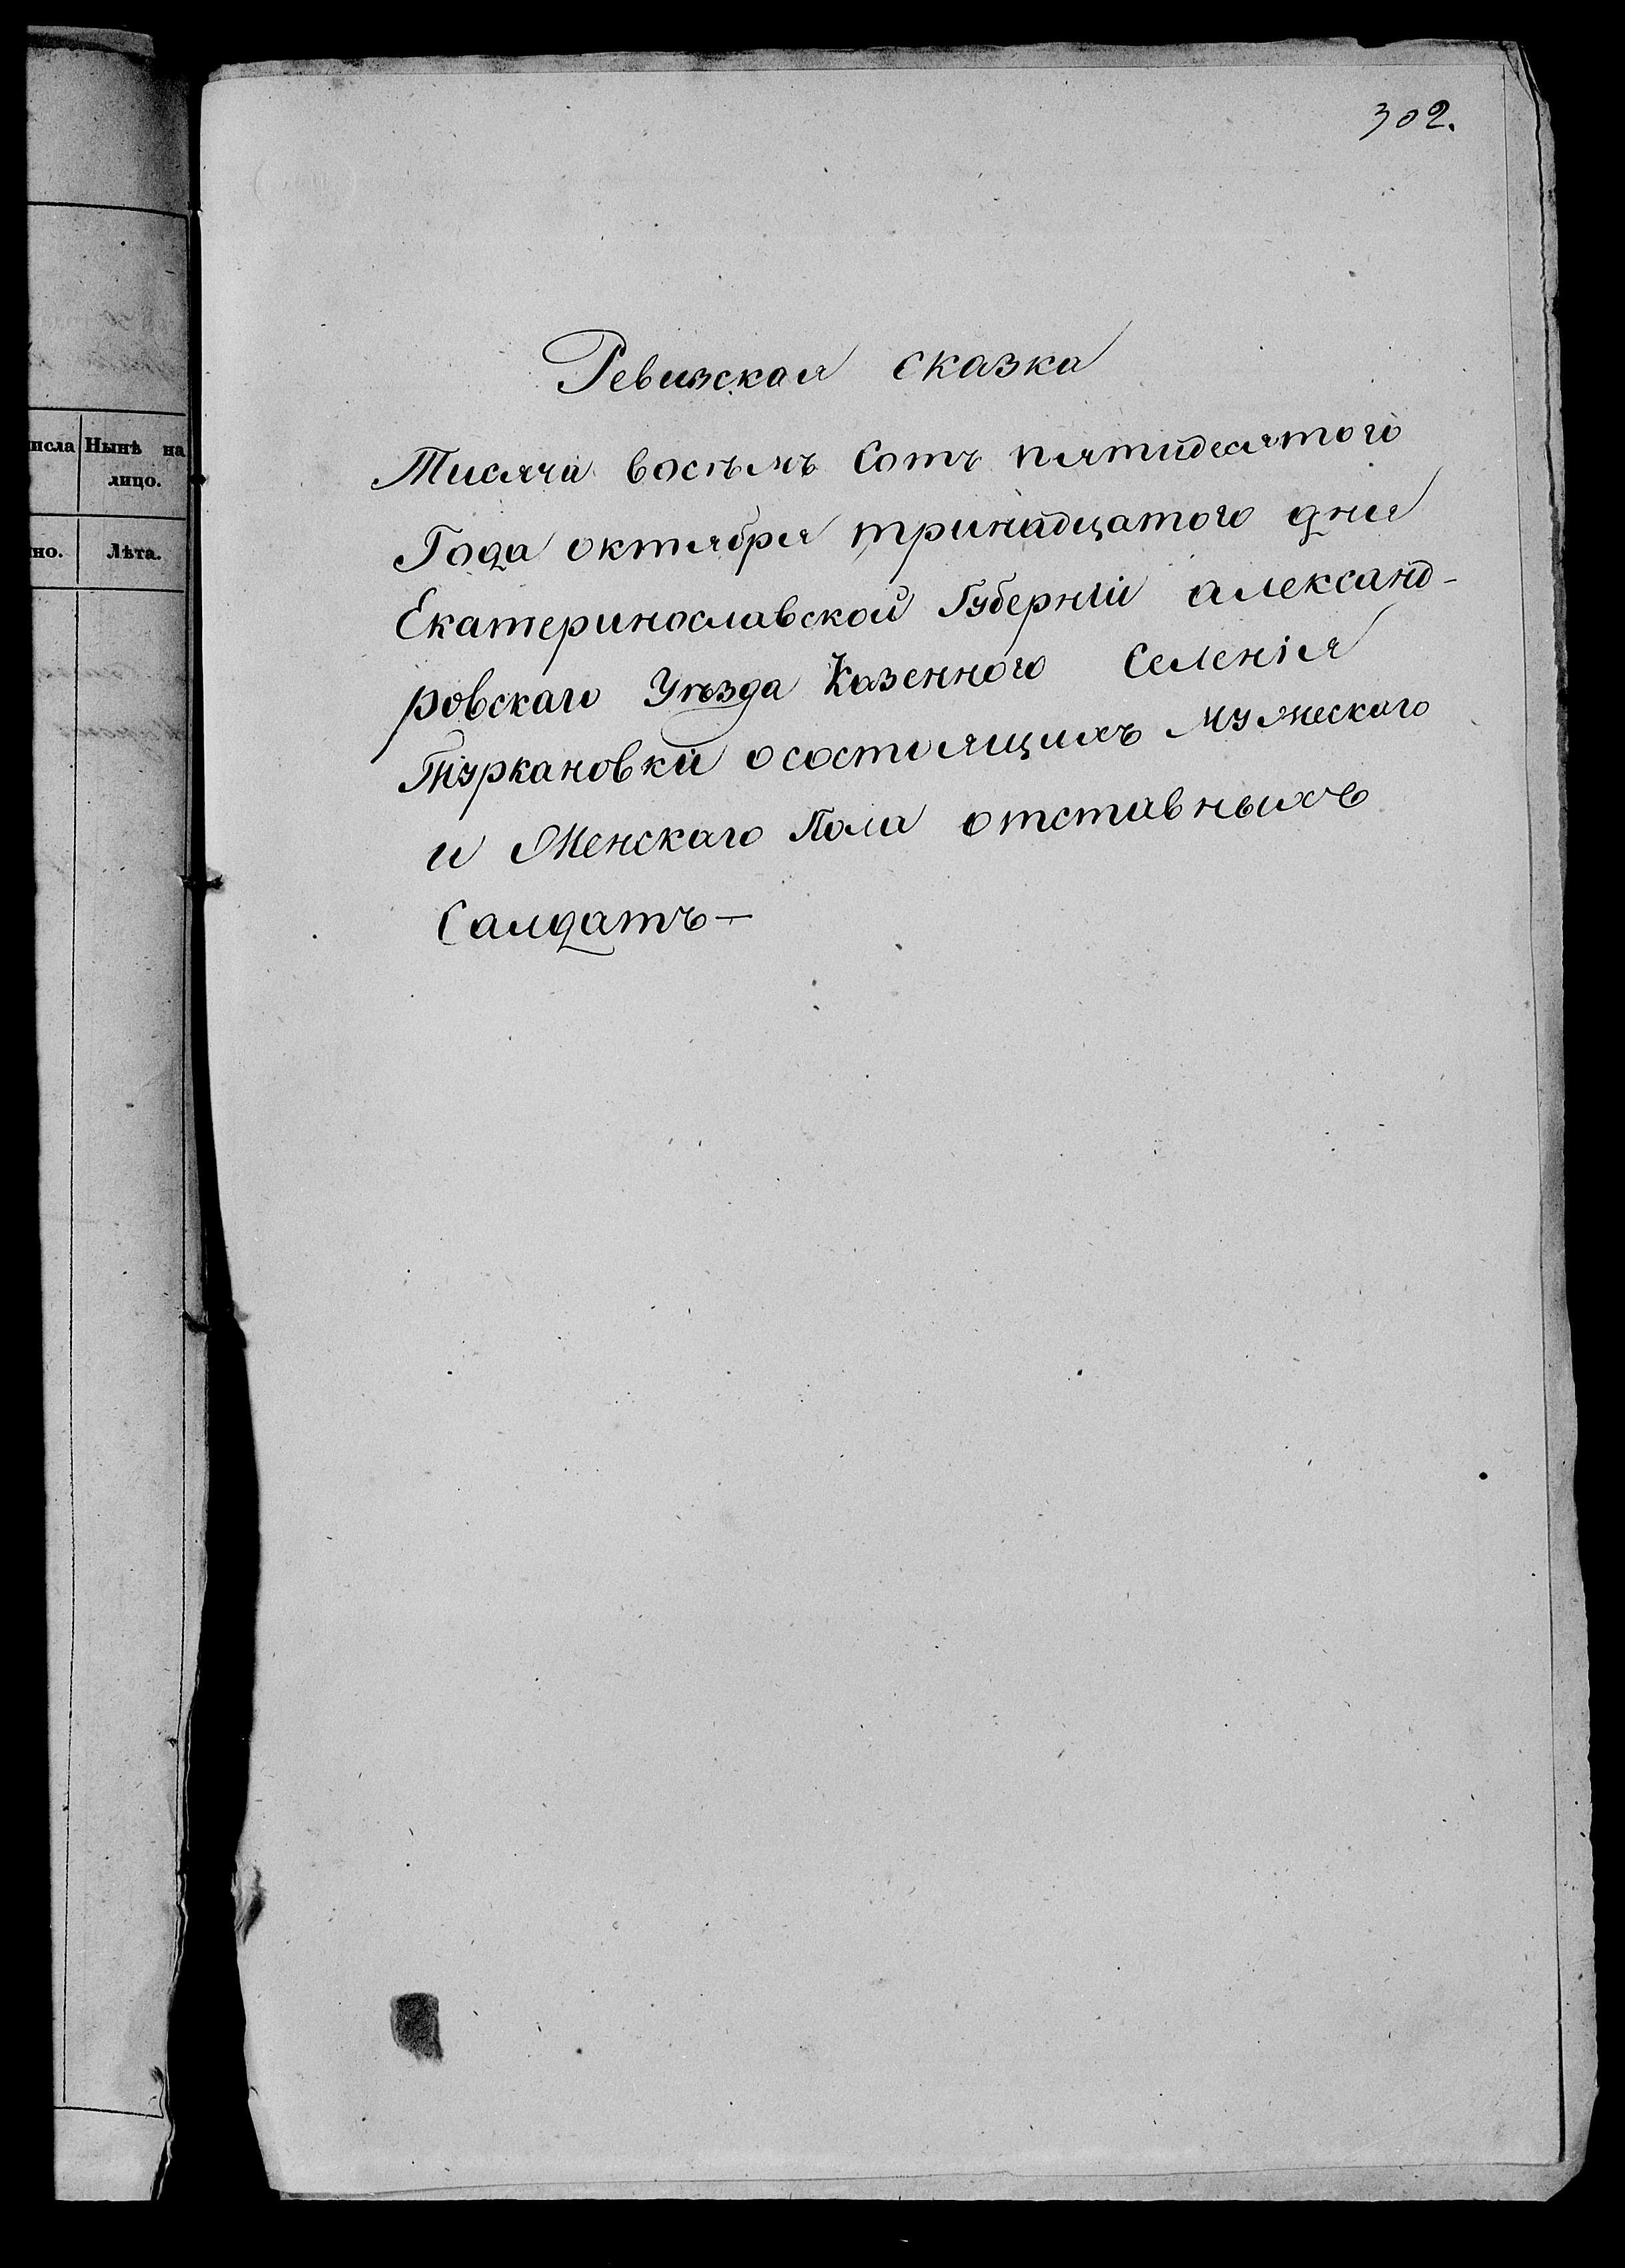 302.
Ревизская сказка
Тисяча восѣмъ Сотъ пятидесятого
Года октября тринадцатого дня
Екатеринославской Губерніи александ-
ровскаго Уѣзда Казенного Селенія
Туркановки о состоящихъ мужескаго
и Женскаго Пола отставныхъ
Салдатъ—
исла Нынѣ на
лицо.
но. Лѣта.